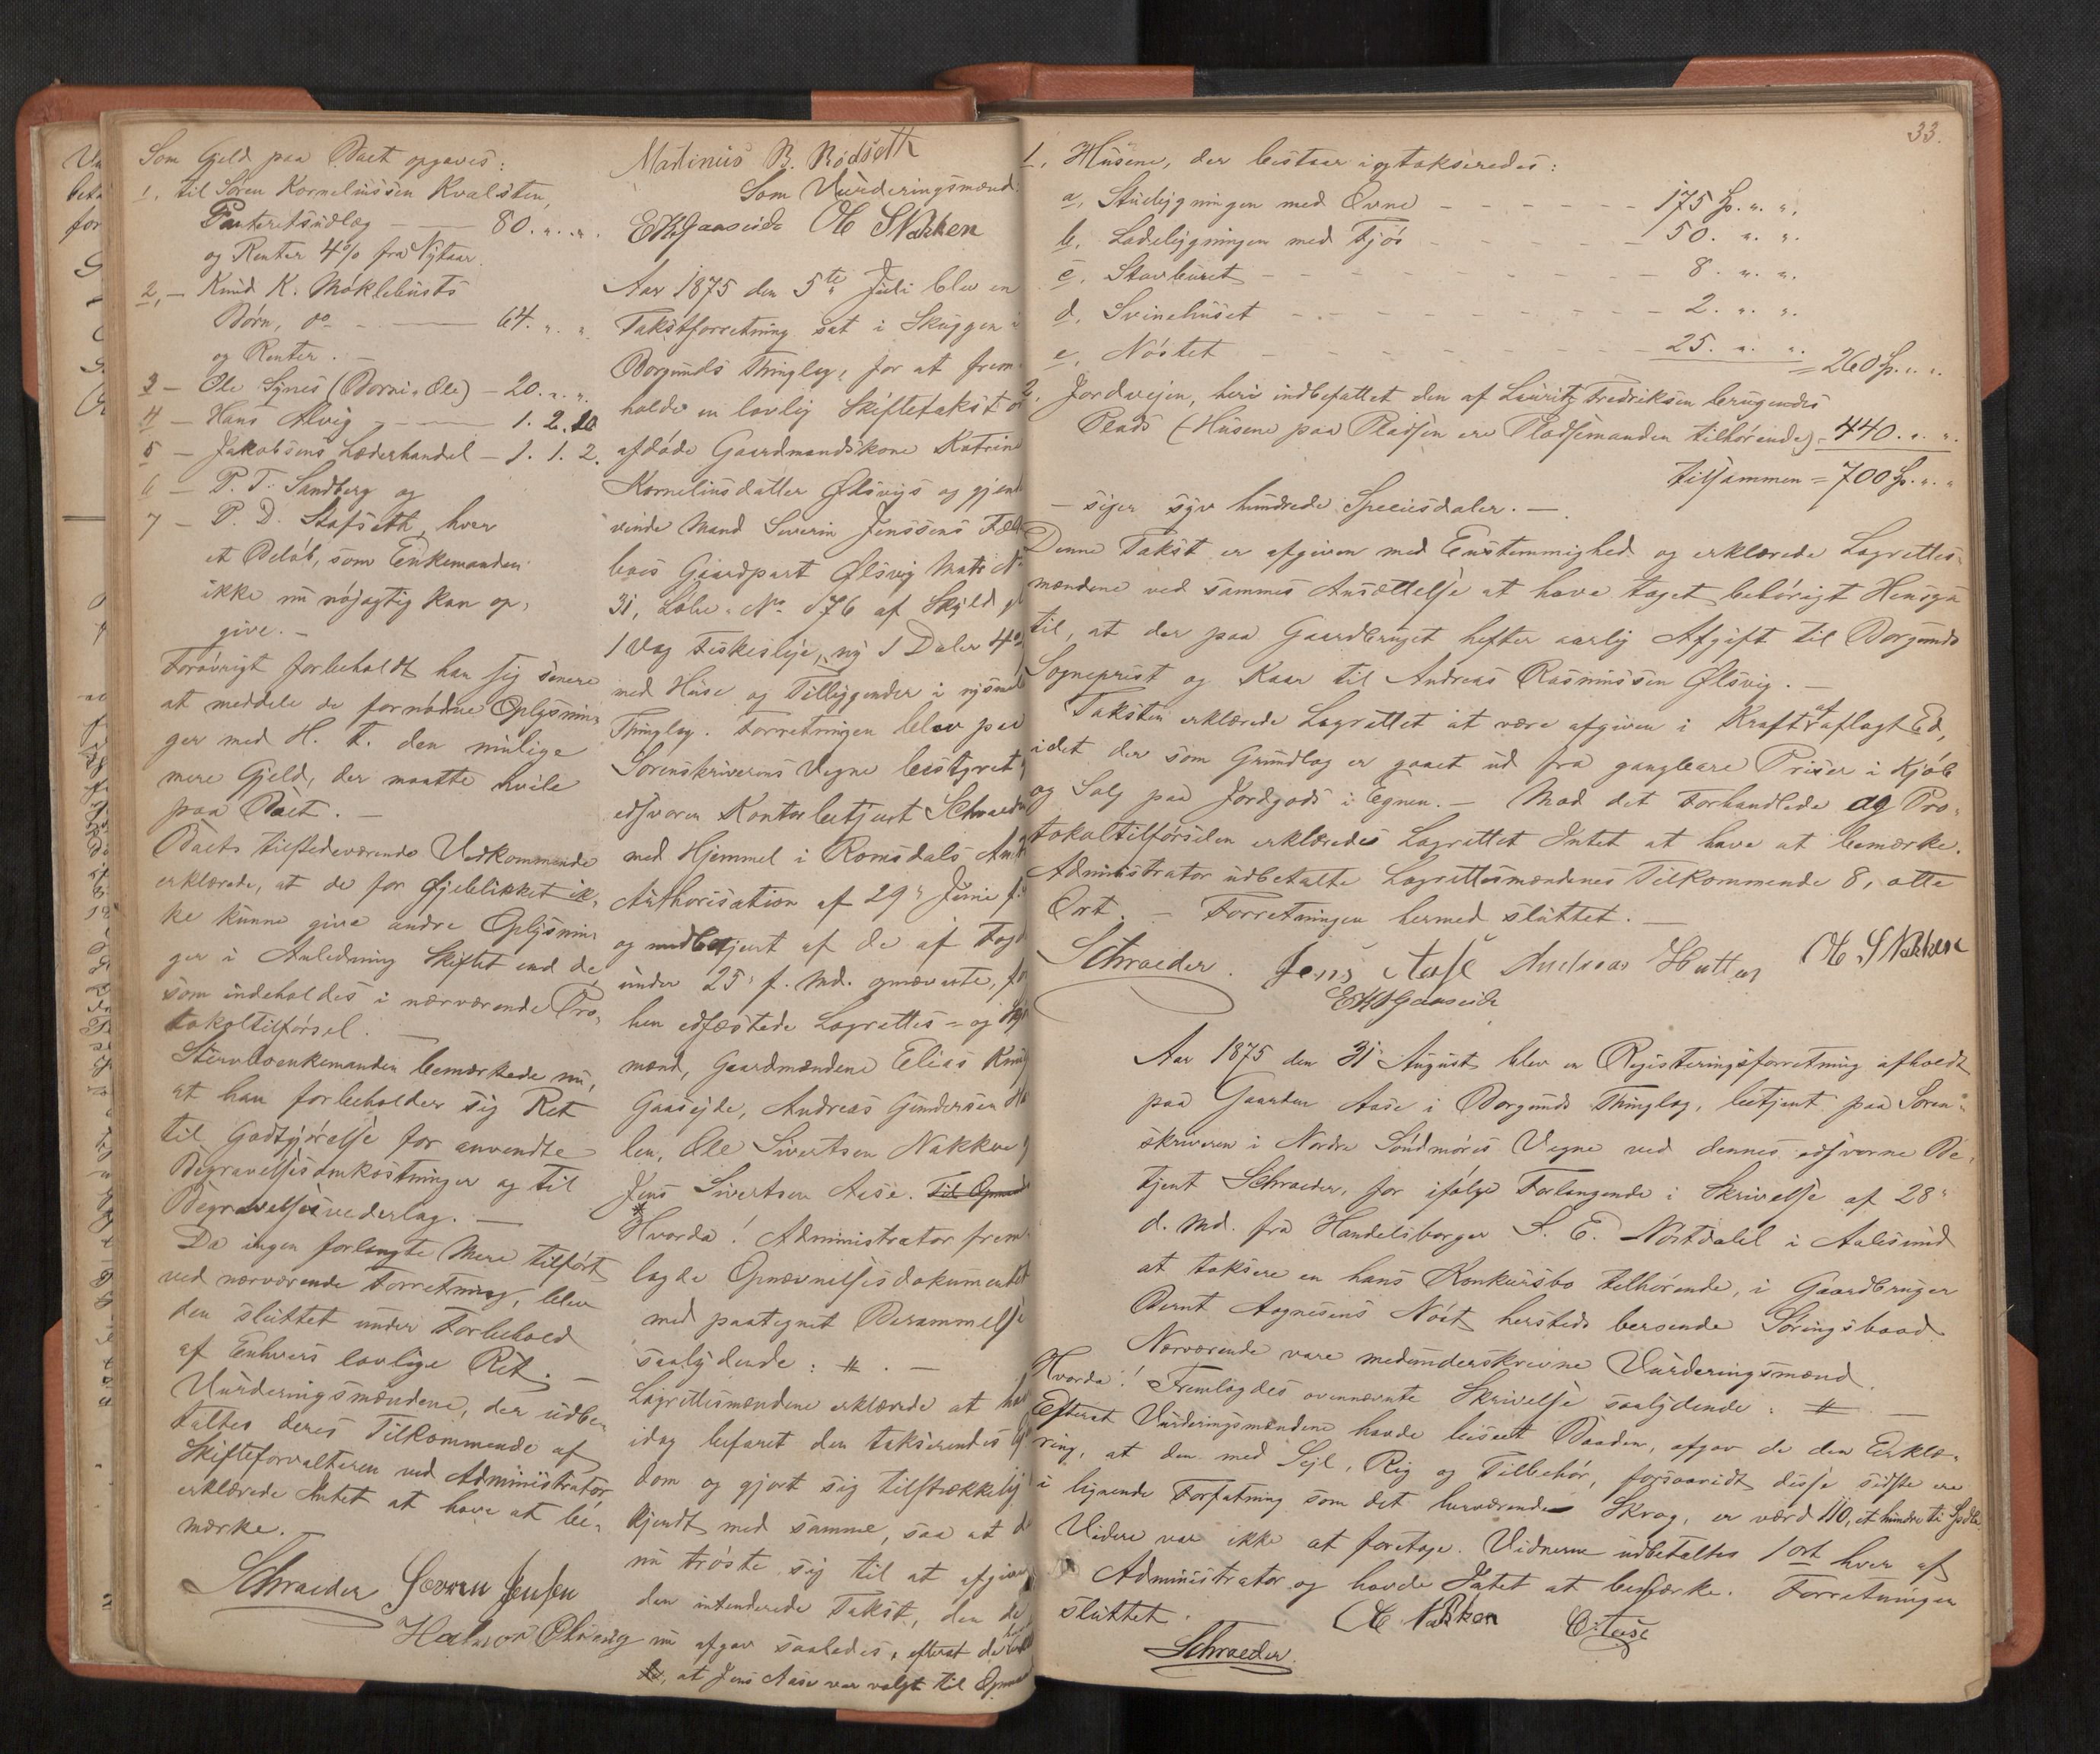 Som Gjeld paa Boet opgaves:
1. til Søren Korneliussen Kvalsten,
Panteretsudlæg — 80. " "
og Renter 4% fra Nytaar.
2, — Knud K. Møklebusts
Børn, do — 64. " "
og Renter. —
3 — Ole Synes (Borni-Ole) — 20. " "
4 — Hans Alvig — 1. 2. 10
5 — Jakobsens Læderhandel — 1. 1. 2.
6 — P. T. Sandberg og
7 — P. D. Stafseth, hver
et Beløb, som Enkemanden
ikke nu nøjagtig kan op-
give. —
Forøvrigt forbeholdt han sig senere
at meddele de fornødne Oplysnin-
ger med H. t. den mulige
mere Gjeld, der maatte hvile
paa Boet. —
Boets tilstedeværende Vedkommende
erklærede, at de for Øjeblikket ik-
ke kunne give andre Oplysnin-
ger i Anledning Skiftet end de,
som indeholdes i nærværende Pro-
tokoltilførsel. —
Stervboenkemanden bemærkede nu,
at han forbeholder sig Ret
til Godtgjørelse for anvendte
Begravelsesomkostninger og til
Begravelsesvederlag. —
Da ingen forlangte Mere tilført
ved nærværende Forretning, blev
den sluttet under Forbehold
af Enhvers lovlige Ret. —
Vurderingsmændene, der udbe-
taltes deres Tilkommende af
Skifteforvalteren ved Administrator
erklærede Intet at have at be-
mærke.
Schraeder Søvren Jensen
Martinius B. Rødseth
Som Vurderingsmænd:
EKGaaseide OC SNakken
Aar 1875 den 5te Juli blev en
Takstforretning sat i Skuggen i
Borgunds Thinglag, for at frem-
holde en lovlig Skiftetakst o
afdøde Gaardmandskone Katrine
Korneliusdatter Ølsvigs og gjen
vinde Mand Severin Jenssens Fæl
boes Gaardpart Ølsvig Matr No
31, Løbe No 176 af Skyld
1 Vog Fiskesleje, ny 1 Daler 4
med Huse og Tilliggender i nysnæ
Thinglag. Forretningen blev paa
Sorenskriverens Vegne bestyret
edsvoren Kontorbetjent Schraed
med Hjemmel i Romsdals Am
Authorisation af 29" Juni f.
og medbetjent af de af Fog
under 25" f. Md. opnævnte, fo
hen edfæstede Lagrettes- og
mænd, Gaardmændene Elias Knu
Gaasejde, Andreas Gundersen
len, Ole Sivertsen Nakken
Jens Sivertsen Aase. Til Opmand
Hvorda! Administrator frem-
lagde Opnævnelsesdokumentet
med paategnet Berammelse
saalydende: #. —
Lagrettesmændene erklærede at ha
idag befaret den takserendes
dom og gjort sig tilstrækkelig
kjendt med samme, saa at d
nu trøste sig til at afgive
den intenderede Takst, den de
nu afgav saaledes, efterat de
at Jens Aase var valgt til Opma
33.
1. Husene, der bestaar i og takseredes:
a, Stuebygningen med Ovne — 175 Sp. " ".
b, Ladebygningen med Fjøs — 50. " ".
c, Stavburet — 8. " ".
d, Svinehuset — 2. " ".
e, Nøstet — 25. " ". = 260 Sp. " ".
2. Jordvejen, heri indbefattet den af Lauritz Fredriksen brugendes
Plads (Husene paa Pladsen ere Pladsemanden tilhørende) - 440. " ".
tilsammen = 700 Sp. " "
— siger syv hundrede Speciesdaler. —
Denne Takst er afgiven med Enstemmighed og erklærede Lagrettes-
mændene ved sammes Ansættelse at have taget behørigt Hensyn
til, at der paa Gaardbruget hefter aarlig Afgift til Borgunds
Sogneprest og Kaar til Andreas Rasmussen Ølsvig. —
Taksten erklærede Lagrettet at være afgiven i Kraft af aflagt Ed,
idet der som Grundlag er gaaet ud fra gangbare Priser i Kjøb
og Salg paa Jordgods i Egnen. — Mod det Forhandlede og Pro-
tokoltilførselen erklæredes Lagrettet Intet at have at bemærke.
Administrator udbetalte Lagrettesmændenes Tilkommende 8, otte
Ort. — Forretningen hermed sluttet. —
Schraeder. Jens Aase Andreas Hutlen OC SNakken
EKGaaseide
Aar 1875 den 31 August blev en Registeringsforretning afholdt
paa Gaarden Aase i Borgunds Thinglag, betjent paa Soren-
skriveren i Nordre Søndmøres Vegne ved dennes edsvorne Be-
tjent Schraeder, for ifølge Forlangende i Skrivelse af 28"
d. Md. fra Handelsborger S. E. Nøstdahl i Aalesund
at taksere en hans Konkursbo tilhørende, i Gaardbruger
Bernt Aagnesens Nøst hersteds beroende Søringsbaad.
Nærværende vare medunderskrevne Vurderingsmænd.
Hvorda! Fremlagdes ovennævnte Skrivelse saalydende: # —
Efterat Vurderingsmændene havde beseet Baaden, afgav de den Erklæ-
ring, at den med Sejl, Rig og Tilbehør, forsaavidt disse sidste ere
i lignende Forfatning som det herværende Skrog, er værd 110, et hundre ti Spdlr.
Videre var ikke at foretage. Vidnerne udbetaltes 1 Ort hver af
Administrator og havde Intet at bemærke. Forretningen
sluttet.
OC Nakken
Schraeder.